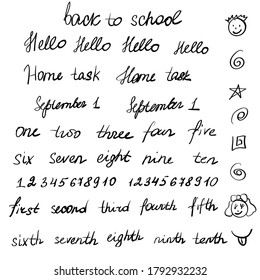 back to school
Hello Hello Hello Hello
Home task Home task
September 1 September 1
one two three four five
six seven eight nine ten
12345678910 12345678910
first second third fourth fifth
sixth seventh eighth ninth tenth
shutterstock.com · 1792932232